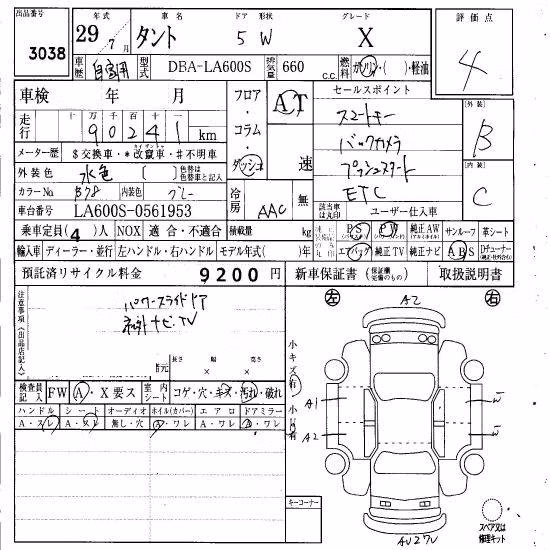 出品番号 3038
年式 29年 7月
車名 タント
ドア 形状 5 W
グレード X
評価点 4
車歴 自家用
型式 DBA-LA600S
排気量 660 c.c.
燃料 ガソリン・( )・軽油
車検 年 月
フロア・コラム・ダッシュ
AT 速
セールスポイント
スマートキー
バックカメラ
プッシュスタート
ETC
外装 B
内装 C
走行 十 万 千 百 十 一
90241 km
メーター歴 $交換車・*改竄車・#不明車
外装色 水色 〔 〕 色替は色替車と記入
カラーNo B78 内装色 グレー
冷房 AAC 無
車台番号 LA600S-0561953
該当車は丸印 ユーザー仕入車
乗車定員(4)人 NOX 適合・不適合 積載量 kg
PS PW 純正AW サンルーフ 革シート
輸入車 ディーラー・並行 左ハンドル・右ハンドル モデル年式( )年
エアバッグ 純正TV 純正ナビ ABS Dチューナー
預託済リサイクル料金 9200円
新車保証書 (保証欄完備のもの) 取扱説明書
注意事項(出品店記入)
パワースライドドア
社外ナビ.TV
左 A2 右
長さ 幅 高さ
荷台寸元 × ×
小キズ有
小凹有
A1 W
A2 W
検査員記入 FW A・X要ス 室内シート コゲ・穴・キズ・汚れ・破れ
ハンドル シート オーディオ ホイル(カバー) エアロ ドアミラー
A・スレ A・スレ 無し・穴 A・ワレ A・ワレ A・ワレ
キーコーナー
スペア又は修理キット
AU2 7U